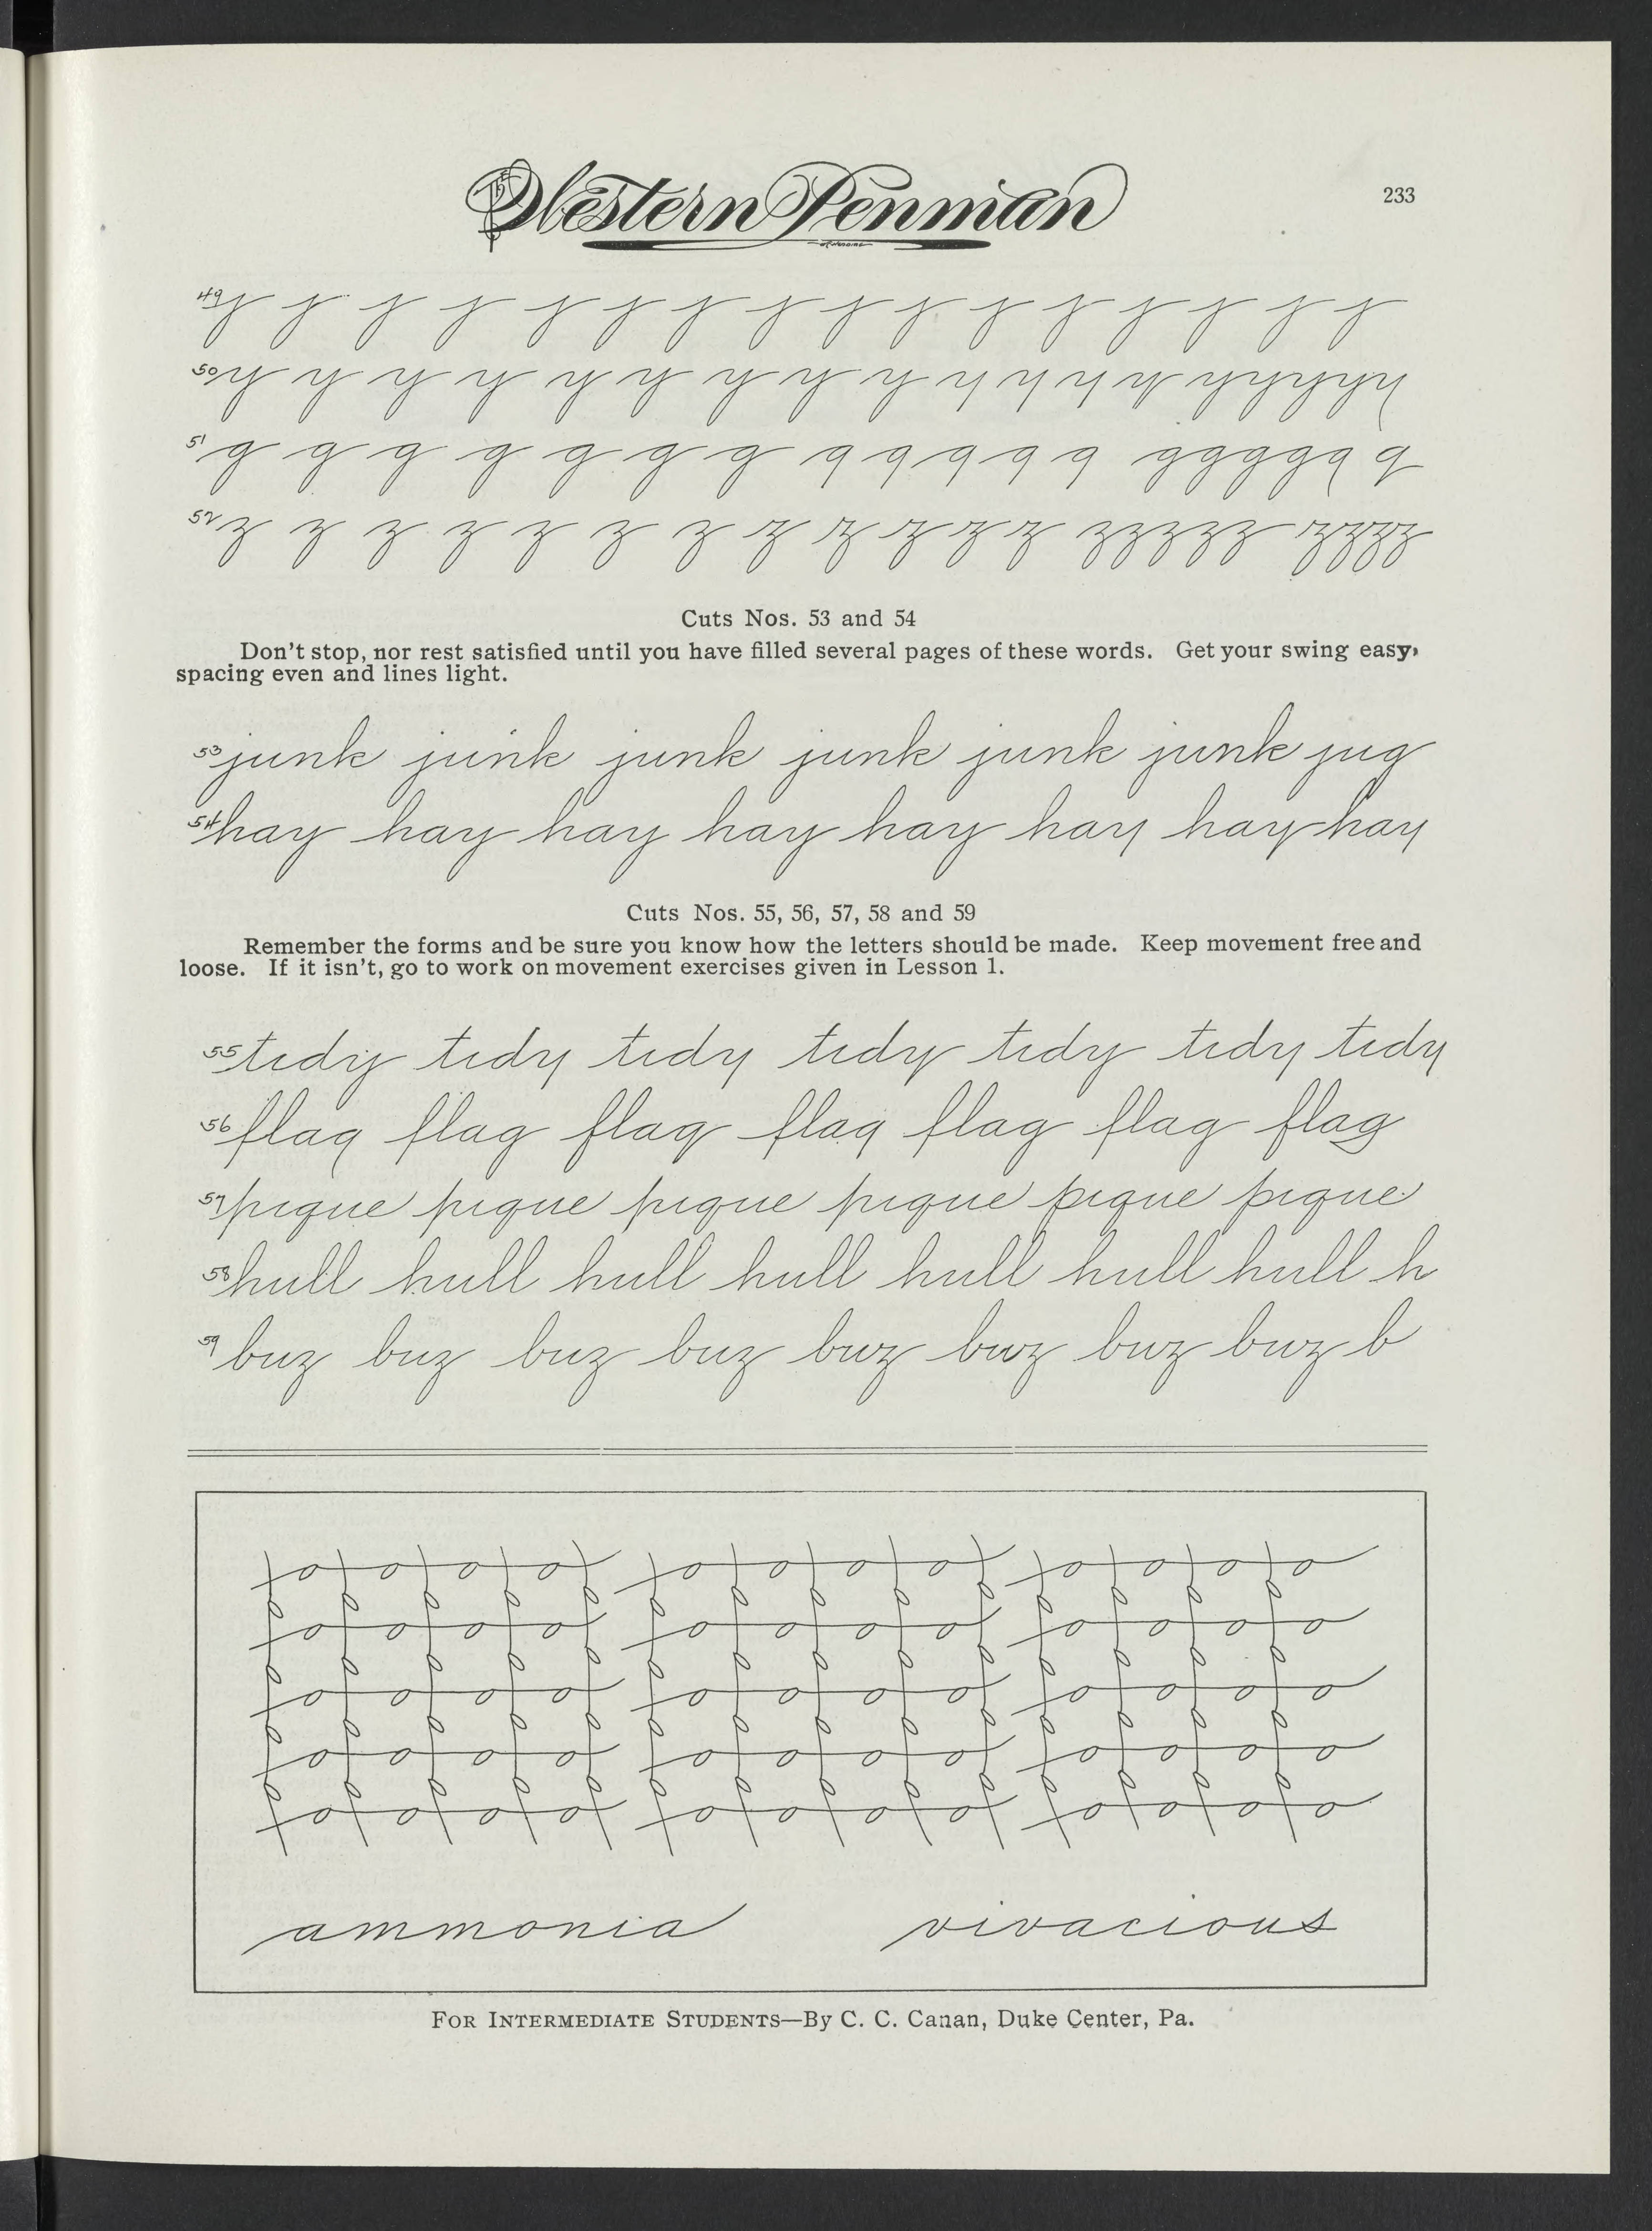 The Western Penman
233
49 j j j j j j j j j j j j j j j j
50 y y y y y y y y y y y y y yyyyyy
51 g g g g g g g q q q q q gggggq g
52 z z z z z z z z z z z z zzzzz zzzz
Cuts Nos. 53 and 54
Don't stop, nor rest satisfied until you have filled several pages of these words. Get your swing easy,
spacing even and lines light.
53 junk junk junk junk junk junk jug
54 hay hay hay hay hay hay hay hay
Cuts Nos. 55, 56, 57, 58 and 59
Remember the forms and be sure you know how the letters should be made. Keep movement free and
loose. If it isn't, go to work on movement exercises given in Lesson 1.
55 tidy tidy tidy tidy tidy tidy tidy
56 flag flag flag flag flag flag flag
57 pique pique pique pique pique pique
58 hull hull hull hull hull hull hull h
59 buz buz buz buz buz buz buz buz b
ammonia vivacious
FOR INTERMEDIATE STUDENTS—By C. C. Canan, Duke Center, Pa.